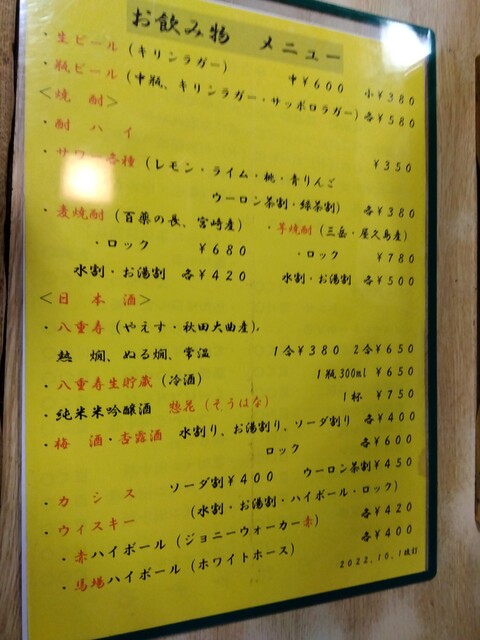 お飲み物 メニュー
・生ビール(キリンラガー) 中¥600 小¥380
・瓶ビール(中瓶、キリンラガー・サッポロラガー)各¥580
<焼酎>
・酎ハイ ¥350
・サワー各種(レモン・ライム・桃・青りんご
ウーロン茶割・緑茶割) 各¥380
・麦焼酎(百薬の長、宮崎産)
・ロック ¥680
水割・お湯割 各¥420
・芋焼酎(三岳・屋久島産)
・ロック ¥780
水割・お湯割 各¥500
<日本酒>
・八重寿(やえす・秋田大曲産)、
熱燗、ぬる燗、常温 1合¥380 2合¥650
・八重寿生貯蔵(冷酒) 1瓶300ml ¥650
・純米米吟醸酒 惣花(そうはな) 1杯 ¥750
・梅酒・杏露酒 水割り、お湯割り、ソーダ割り 各¥400
ロック 各¥600
・カシス ソーダ割¥400 ウーロン茶割¥450
・ウィスキー (水割・お湯割・ハイボール・ロック)
・赤ハイボール(ジョニーウォーカー赤) 各¥420
・馬場ハイボール(ホワイトホース) 各¥400
2022.10.1改訂